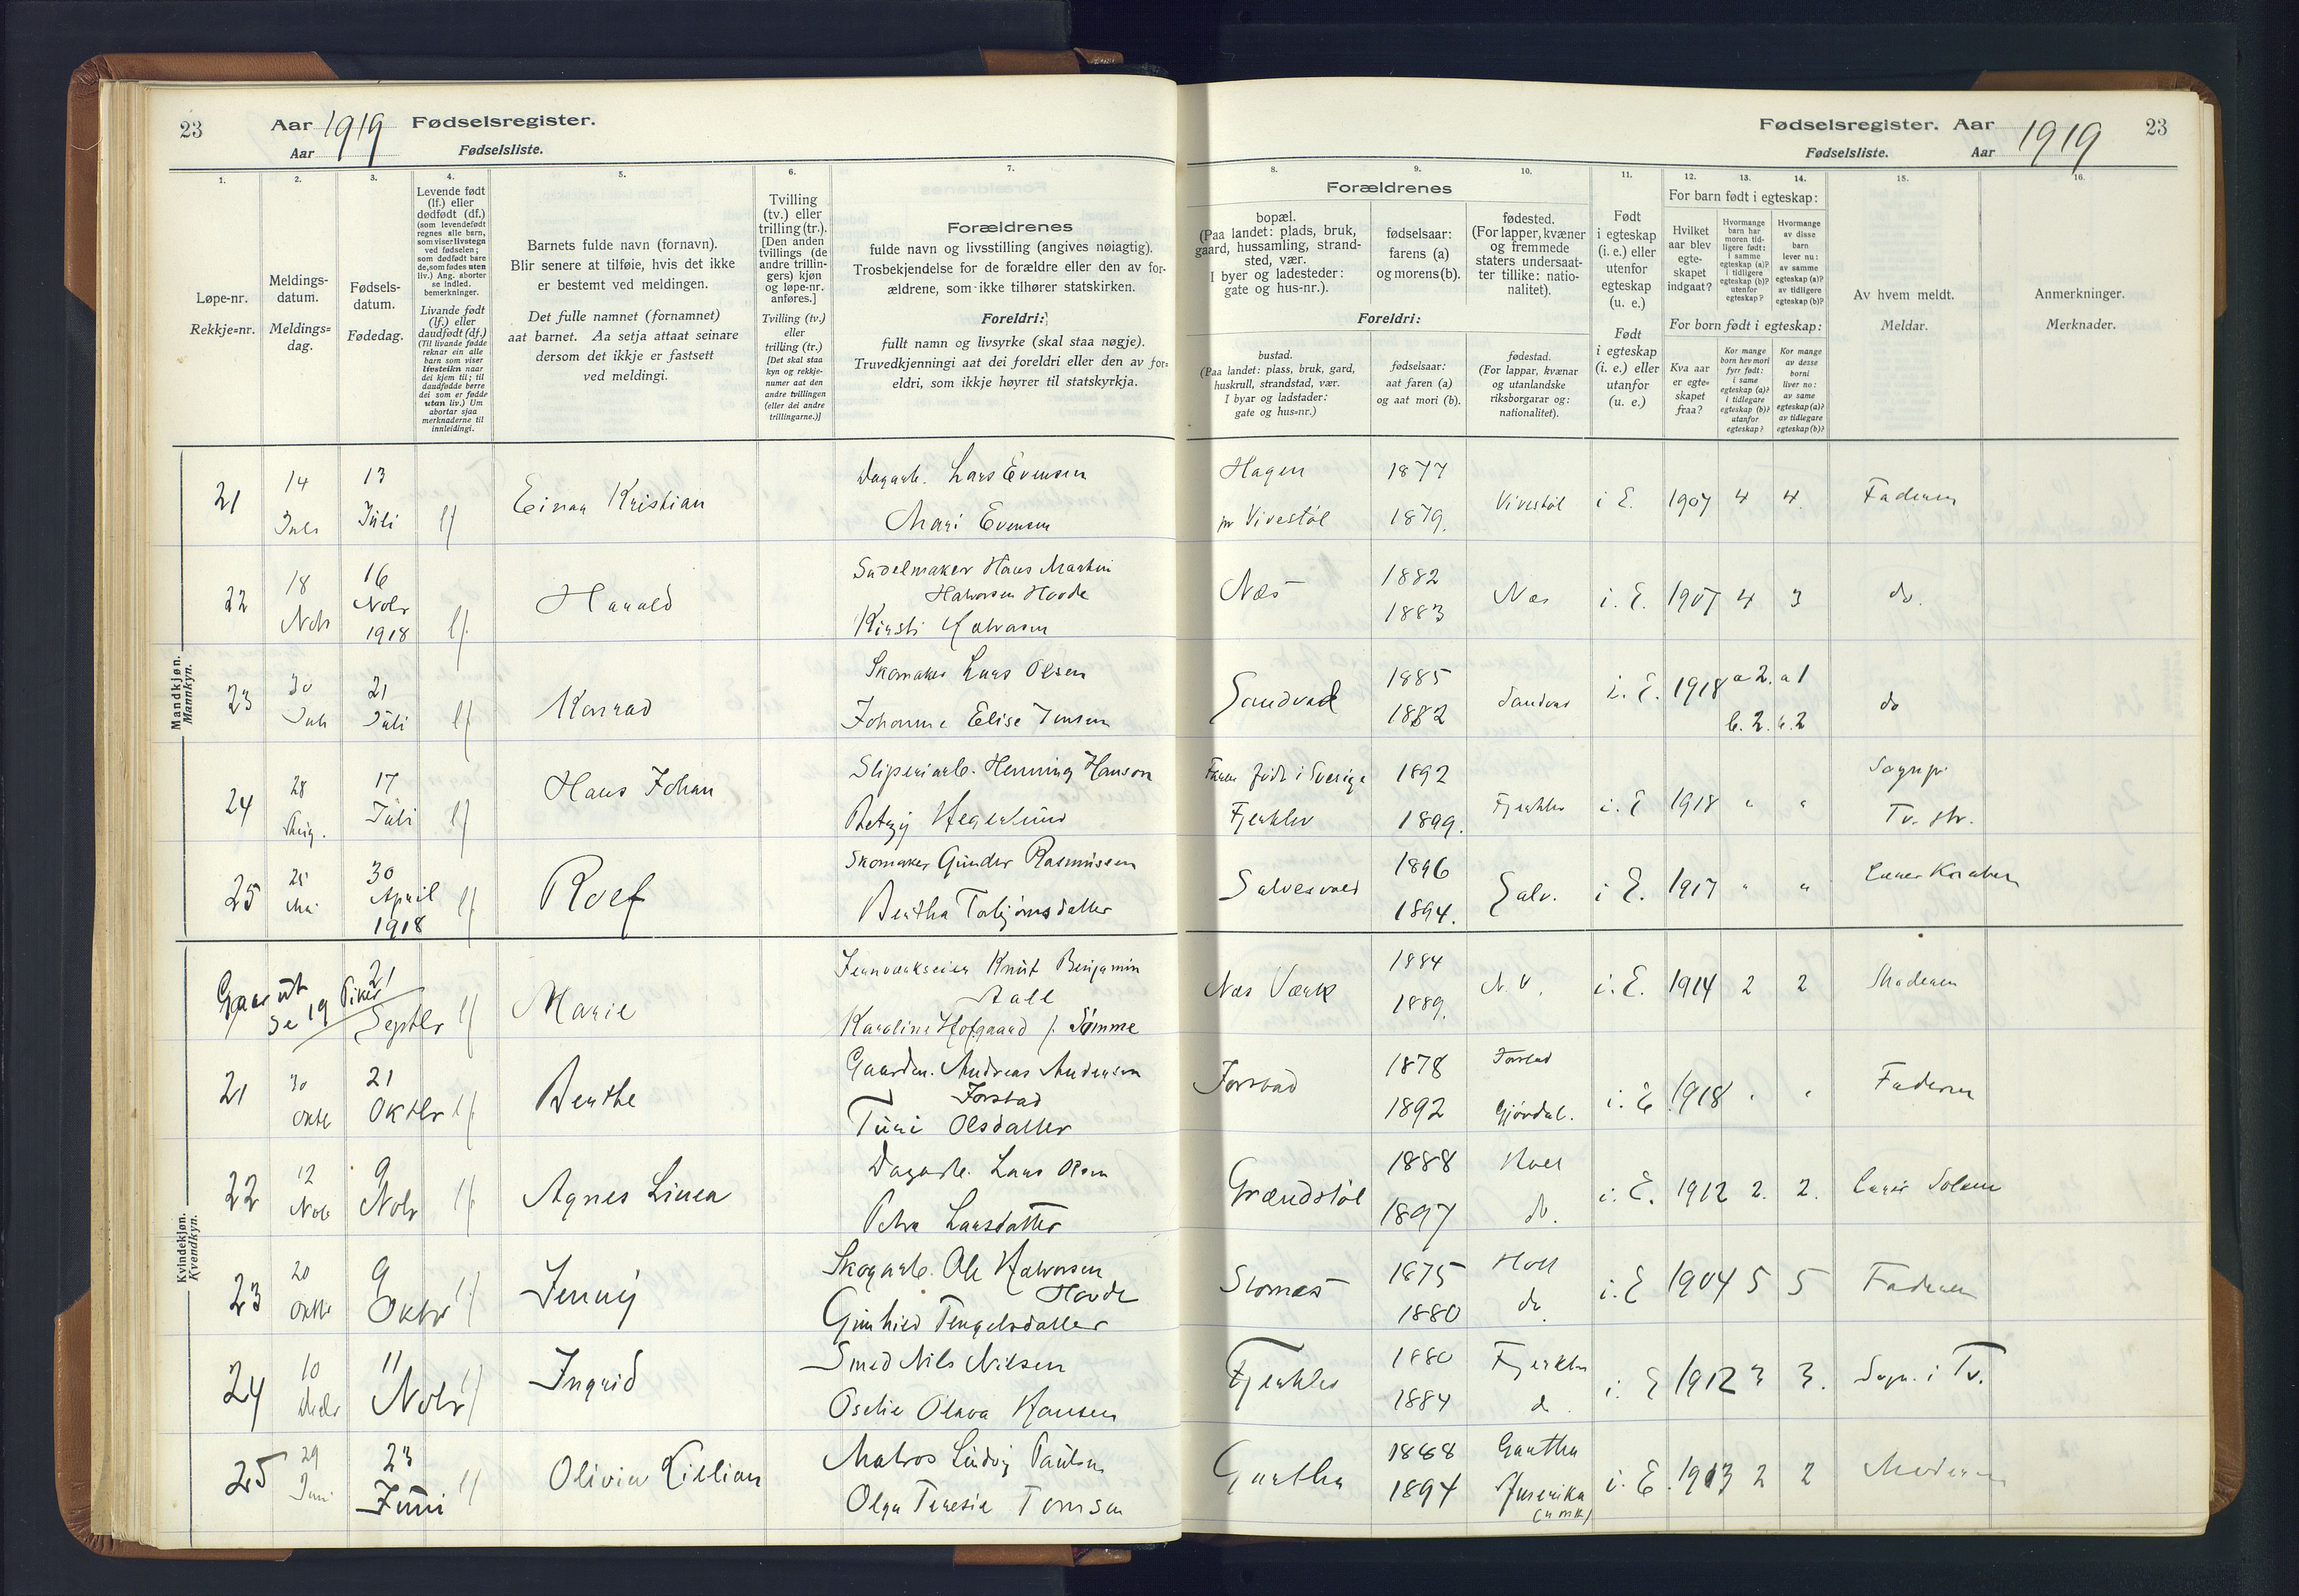 23
Aar 1919 Fødselsregister.
Aar
Fødselsliste.
Fødselsregister. Aar 1919
23
Fødselsliste.
Aar
1.
2.
3.
4.
5.
6.
7.
Løpe-nr.
Rekkje=nr.
Meldings-
datum.
Meldings=
dag.
Fødsels-
datum.
Fødedag.
Levende født
(lf.) eller
dødfødt (df.)
(som levendefødt
regnes alle barn,
som viser livstegn
ved fødselen;
som dødfødt bare
de, som fødes uten
liv.) Ang. aborter
se indled.
bemerkninger.
Livande født
(lf.) eller
daudfødt (df.)
(Til livande fødde
reknar ein alle
barn som viser
livsteikn naar
dei kjem til; til
daudfødde berre
dei som er fødde
utan liv.) Um
abortar sjaa
merknaderne til
innleidingi.
Barnets fulde navn (fornavn).
Blir senere at tilføie, hvis det ikke
er bestemt ved meldingen.
Det fulle namnet (fornamnet)
aat barnet. Aa setja attaat seinare
dersom det ikkje er fastsett
ved meldingi.
Tvilling
(tv.) eller
trilling (tr.).
[Den anden
tvillings (de
andre trillin-
gers) kjøn
og løpe-nr.
anføres.]
Tvilling (tv.)
eller
trilling (tr.)
[Det skal staa
kyn og rekkje-
numer aat den
andre tvillingen
(eller dei andre
trillingarne.)]
Forældrenes
fulde navn og livsstilling (angives nøiagtig).
Trosbekjendelse for de forældre eller den av for-
ældrene, som ikke tilhører statskirken.
Foreldri:
fullt namn og livsyrke (skal staa nøgje).
Truvedkjenningi aat dei foreldri eller den av for-
eldri, som ikkje høyrer til statskyrkja.
8.
9.
10.
11.
12.
13.
14.
15.
16.
Forældrenes
bopæl.
(Paa landet: plads, bruk,
gaard, hussamling, strand-
sted, vær.
I byer og ladesteder:
gate og hus-nr.).
fødselsaar:
farens (a)
og morens (b).
fødested.
(For lapper, kvæner
og fremmede
staters undersaat-
ter tillike: natio-
nalitet).
Foreldri:
bustad.
(Paa landet: plass, bruk, gard,
huskrull, strandstad, vær.
I byar og ladstader:
gate og hus=nr.)
fødselsaar:
aat faren (a)
og aat mori (b).
fødestad.
(For lappar, kvænar
og utanlandske
riksborgarar og:
nationalitet).
Født
i egteskap
(i. e.) eller
utenfor
egteskap
(u. e.)
Født
i egteskap
(i. e.) eller
utanfor
egteskap
(u. e.)
For barn født i egteskap:
Hvilket
aar blev
egte-
skapet
indgaat?
Hvormange
barn har
moren tid-
ligere født:
i samme
egteskap (a)?
i tidligere
egteskap (b)?
utenfor
egteskap?
Hvormange
av disse
barn
lever nu:
av samme
egteskap (a)?
av tidligere
egteskap (b)?
For born født i egteskap:
Kva aar
er egte=
skapet
fraa?
Kor mange
born hev mori
fyrr født:
i same
egteskap (a)?
i tidlegare
egteskap (b)?
utanfor
egteskap?
Kor mange
av desse
borni
liver no:
av same
egteskap (a)?
av tidlegare
egteskap (b)?
Av hvem meldt.
Meldar.
Anmerkninger.
Merknader.
Mandkjøn.
Mannkyn.
21
14
Juli
13
Juli
lf
Einar Kristian
Dagarb. Lars Evensen
Mari Evensen
Hagen
pr Vivestøl
1877
1879.
Vivestøl
i E.
1907 4 4.
Faderen
22
18
Nobr
16
Nobr
1918
lf.
Harald
Sadelmaker Hans Martin
Halvorsen Hovde
Kirsti Halvorsen
Næs
1882
1883
Næs
i. E.
1907 4 3
do.
23
30
Juli
21
Juli
lf
Konrad
Skomaker Lars Olsen
Johanne Elise Jensen
Sandvad
1885
1882
i. E.
1918 a 2. a 1
b. 2. b. 2
do
24
28
Aug.
17
Juli
lf
Hans Johan
Sliperiarb. Henning Hanson
Betzy Hegerlund
Faren født i Sverige
1892
1899.
i. E
1918 " "
Tv. str.
25
25
Mai
30
April
1918
lf
Rolf
Skomaker Gunder Rasmussen
Bertha Torbjørnsdatter
1896
1894.
i E.
1917 " "
Gaar ut
Se 19 Piker
21
Septbr
lf
Marie
Jernverkseier Knut Benjamin
Aall
Karoline Hofgaard f. Sømme
Næs Værk
1884
1889.
N. V.
i. E.
1914 2 2
Moderen
Kvindekjøn.
Kvendkyn.
21
30
Oktb
21
Oktbr
lf.
Berthe
Gaardm. Andreas Andersen
Forstad
Turi Olsdatter
1878
1892
Gjøvdal.
i. E
1918
Faderen
22
12
Nob
9
Nobr
lf
Agnes Linea
Dagarb. Lars Olsen
Petra Larsdatter
Grændstøl
1888
1897
Holt
do.
i. E.
1912 2. 2.
23
20
Oktbr
9
Oktbr
lf
Jenny
Skogarb. Ole Halvorsen
Hovde
Gunhild Tengelsdatter
1875
1880
Holt
do.
i. E
1904 5 5
Faderen
24
10
11
Nobr
lf
Ingrid
Smed Nils Nilsen
Oselie Olava Hansen
1880
1884
i. E
1912 3 3.
Sogn. i Tv.
25
29
Juni
23
Juni
lf
Olivia Lillian
Matros Ludvig Paulsen
Olga Teresie Tomsen
Gartha
1888
1894
Gartha
Amerika
i. E.
1913 2 2
Moderen